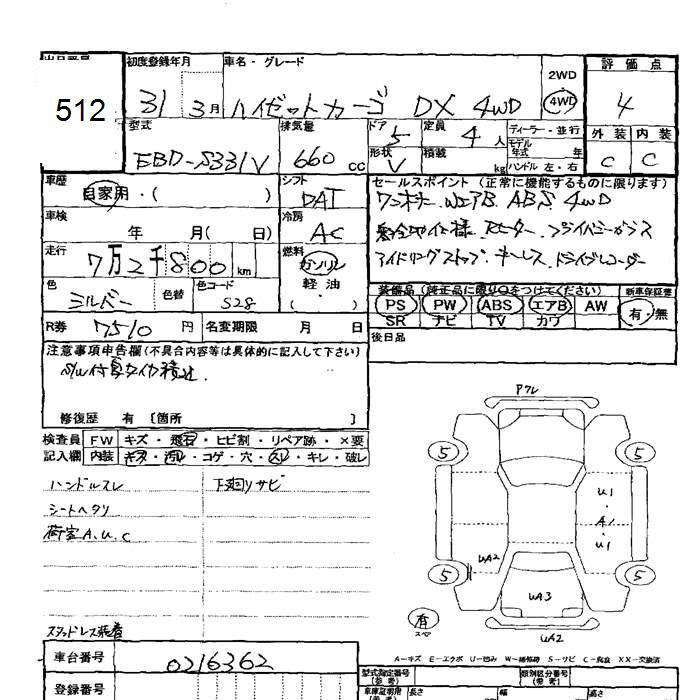 512
初度登録年月 車名・グレード 2WD 評価点
31 3月 ハイゼットカーゴ DX 4WD 4WD 4
型式 排気量 ドア 5 定員 4人 ディーラー・並行 外装 内装
EBD-S331V 660 cc 形状 V 積載 kg モデル年式 年 C C
ハンドル 左・右
車歴 シフト セールスポイント (正常に機能するものに限ります)
自家用・( ) DAT ワンオーナー Wエア B ABS 4WD
車検 冷房
年 月( 日) AC ヒーター プライバシーガラス
走行 7万2千800km 燃料 アイドリングストップ キーレス ドライブレコーダー
ガソリン
色 色替 色コード 軽油
シルバー S28 ・( )
装備品 (純正品に限り○をつけてください) 新車保証書
PS PW ABS エアB AW 有・無
SR ナビ TV カワ
R券 7510円 名変期限 月 日 後日品
注意事項申告欄(不具合内容等は具体的に記入して下さい)
S/W付夏タイヤ積込
修復歴 有 〔箇所 〕
検査員 FW キズ・飛石・ヒビ割・リペア跡・×要
記入欄 内装 キズ・汚レ・コゲ・穴・スレ・キレ・破レ
ハンドルスレ 下廻リサビ
シートヘタリ
荷室A.U.C
スタッドレス装着
Pフレ
5 5
U1
・
A1
・
U1
UA2
5 5
UA3
有
スペア
UA2
A-キズ E-エクボ U-凹み W-補修跡 S-サビ C-腐食 XX-交換済
車台番号 0216362
型式指定番号 (参考) 類別区分番号 (参考)
登録番号 長さ 幅 高さ